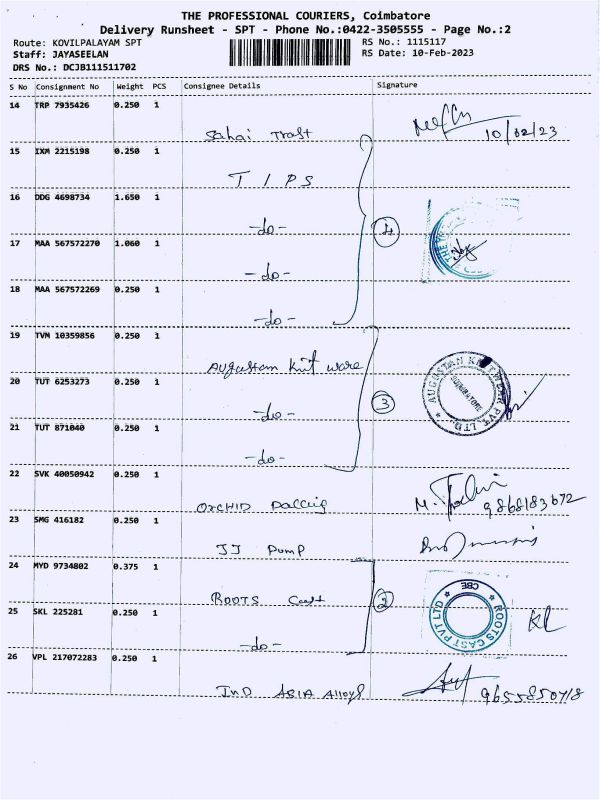 THE PROFESSIONAL COURIERS, Coimbatore
Delivery Runsheet - SPT - Phone No.:0422-3505555 - Page No.:2
Route: KOVILPALAYAM SPT
Staff: JAYASEELAN
DRS No.: DCJB111511702
RS No.: 1115117
RS Date: 10-Feb-2023
S No Consignment No Weight PCS Consignee Details Signature
14 TRP 7935426 0.250 1
Sahai Trast 10/02/23
15 IXM 2215198 0.250 1
TIPS
16 DDG 4698734 1.650 1
-do- 4
17 MAA 567572270 1.060 1
-do-
18 MAA 567572269 0.250 1
-do-
19 TVM 10359856 0.250 1
Augustam Knit ware
AUGUSTAN KNITWEAR PVT. LTD.
20 TUT 6253273 0.250 1
-do- 3
21 TUT 871040 0.250 1
-do-
22 SVK 40050942 0.250 1
ORCHID Paccing M. 9868183672
23 SMG 416182 0.250 1
JJ Pump
24 MYD 9734802 0.375 1
ROOTS Cast 2
ROOTS CAST PVT LTD * CBE *
25 SKL 225281 0.250 1
-do-
26 VPL 217072283 0.250 1
IND ASIA Alloys 9655850718